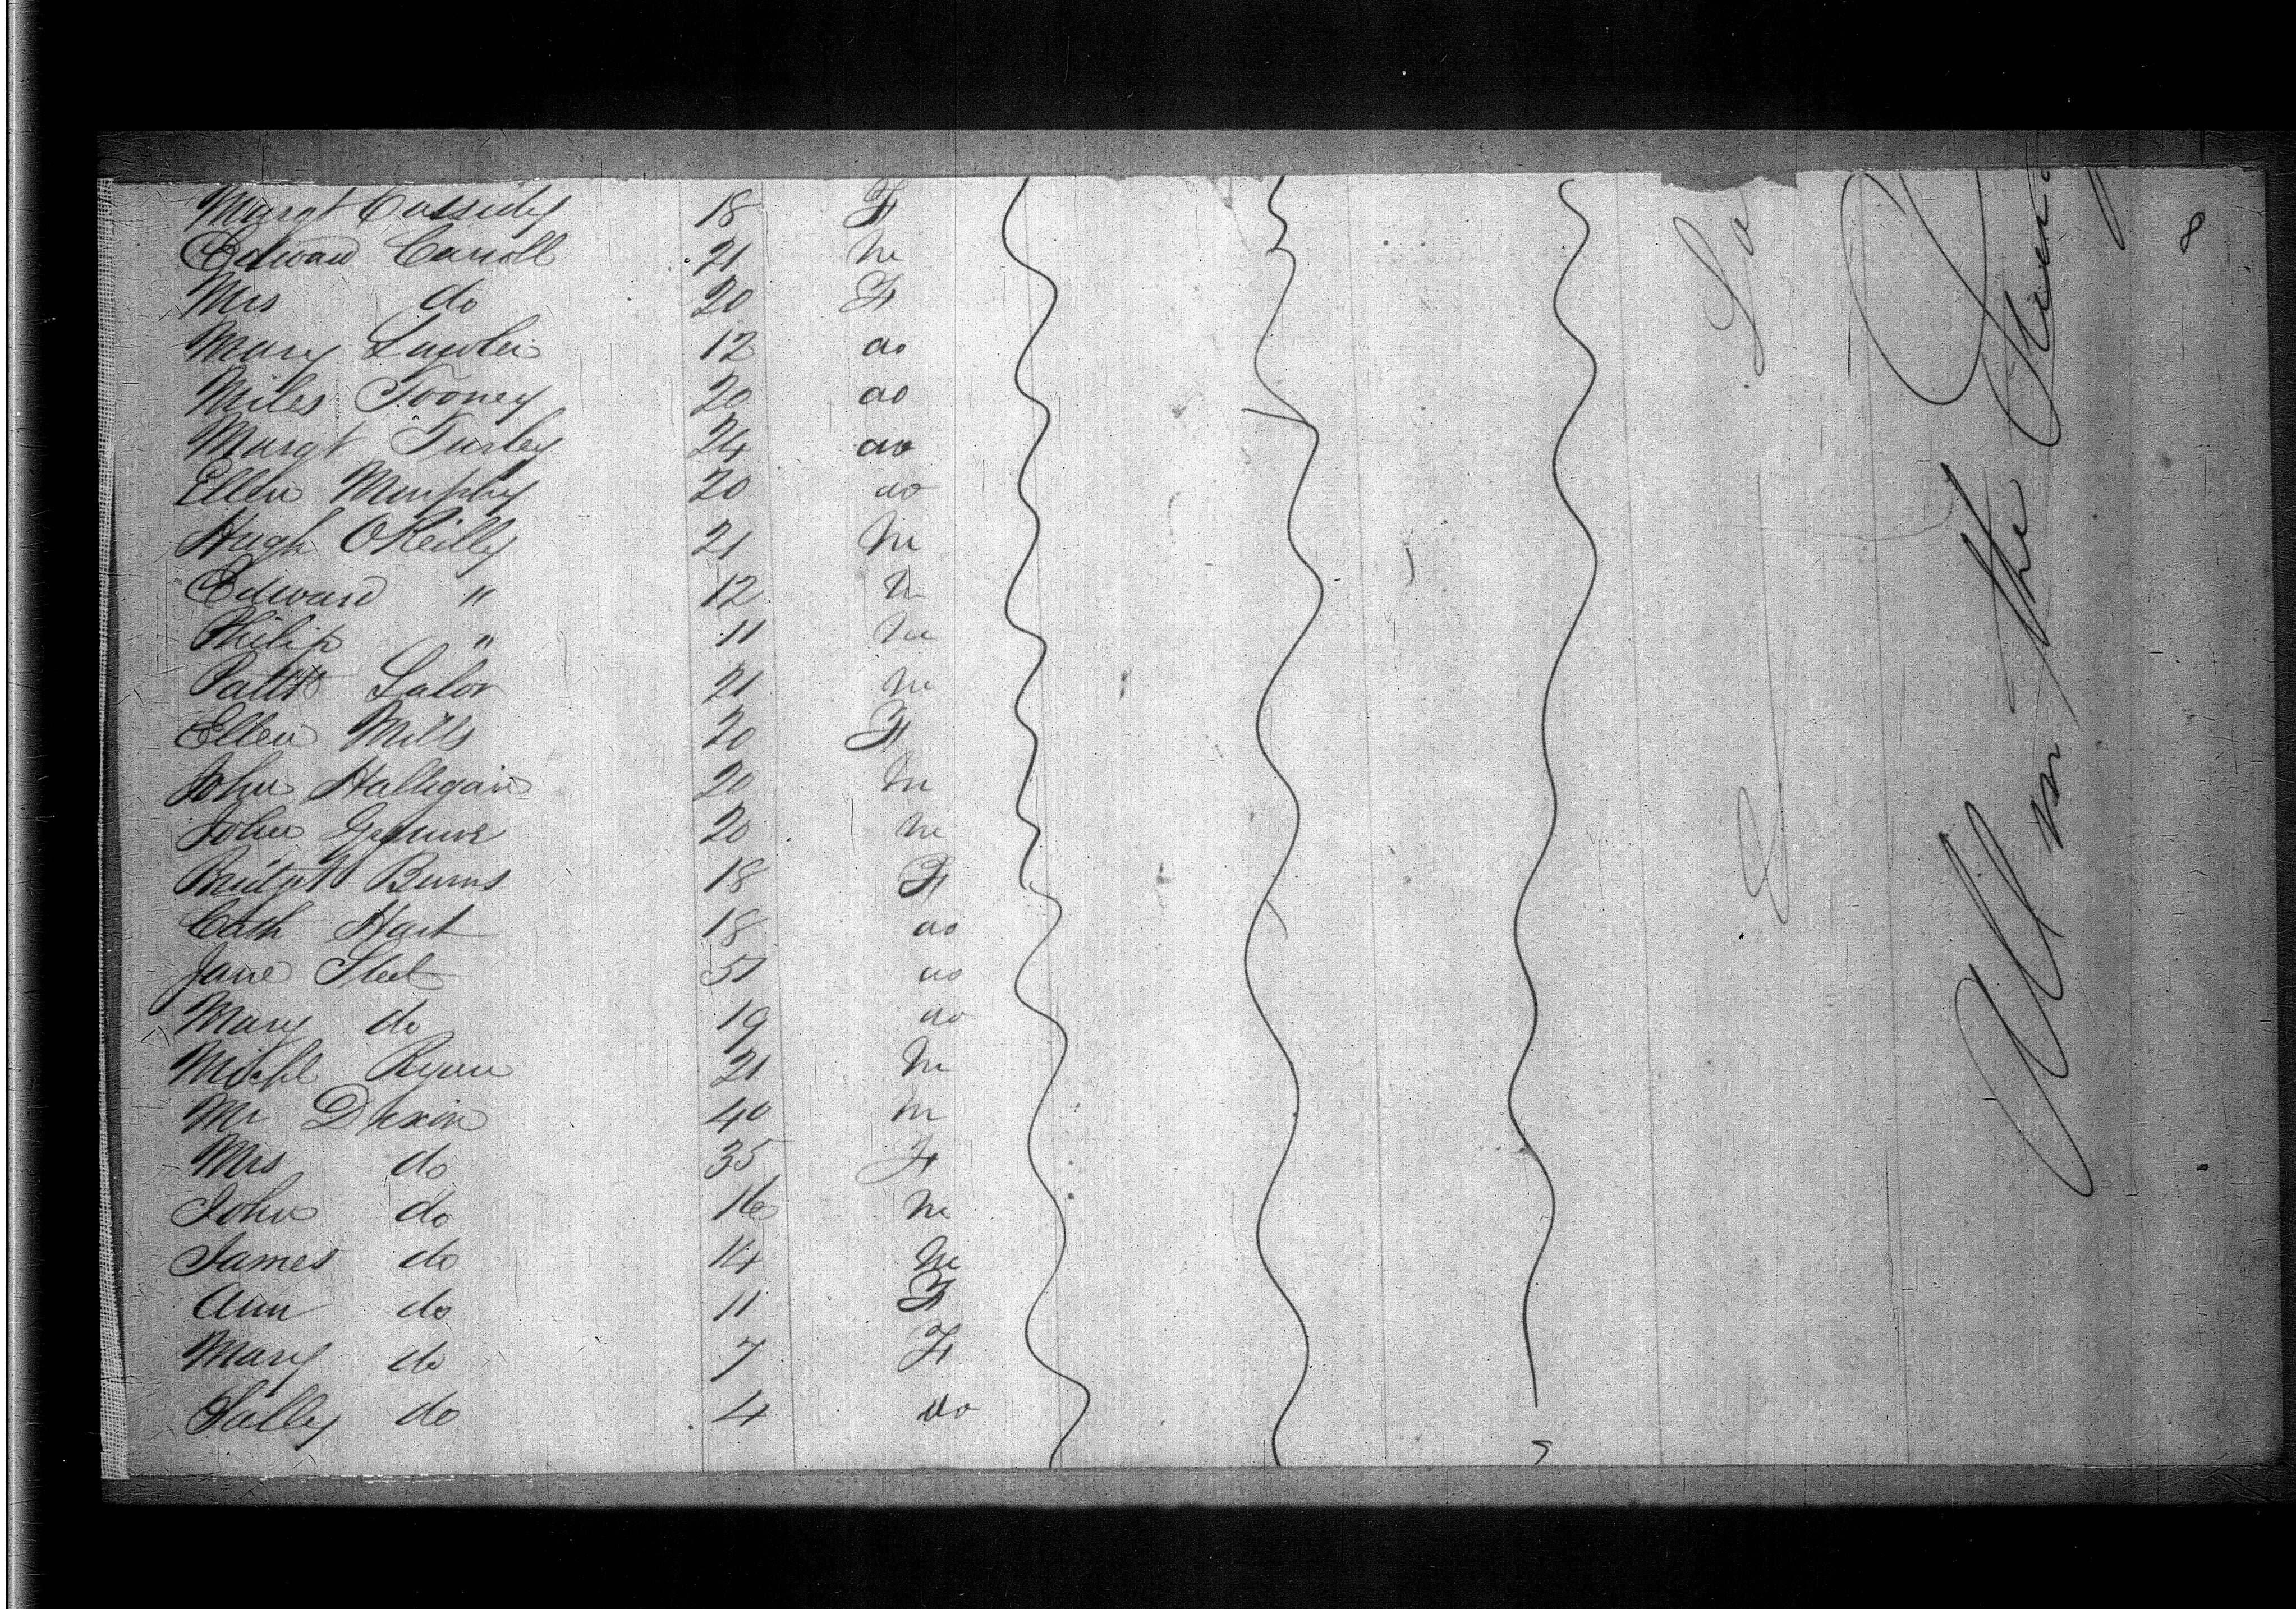 Margt Cassidy 18 F
Edward Carroll 21 m
Mrs do 20 F
Mary Lawler 12 do
Miles Tooney 20 do
Margt Turley 24 do
Ellen Murphy 20 do
Hugh OReilly 21 m
Edward " 12 m
Philip " 11 m
Lalor 21 m
Ellen Mills 20 F
John Halligan 20 m
John 20 m
Bridget Burns 18 F
Cath Hart 18 do
Jane Steel do
Mary do 19 do
Michl Ryan 21 m
Mr Dixon 40 m
Mrs do 35 F
John do 16 m
James do 14 m
Ann do 11 F
Mary do 7 F
Sally do 4 do
All in the
8